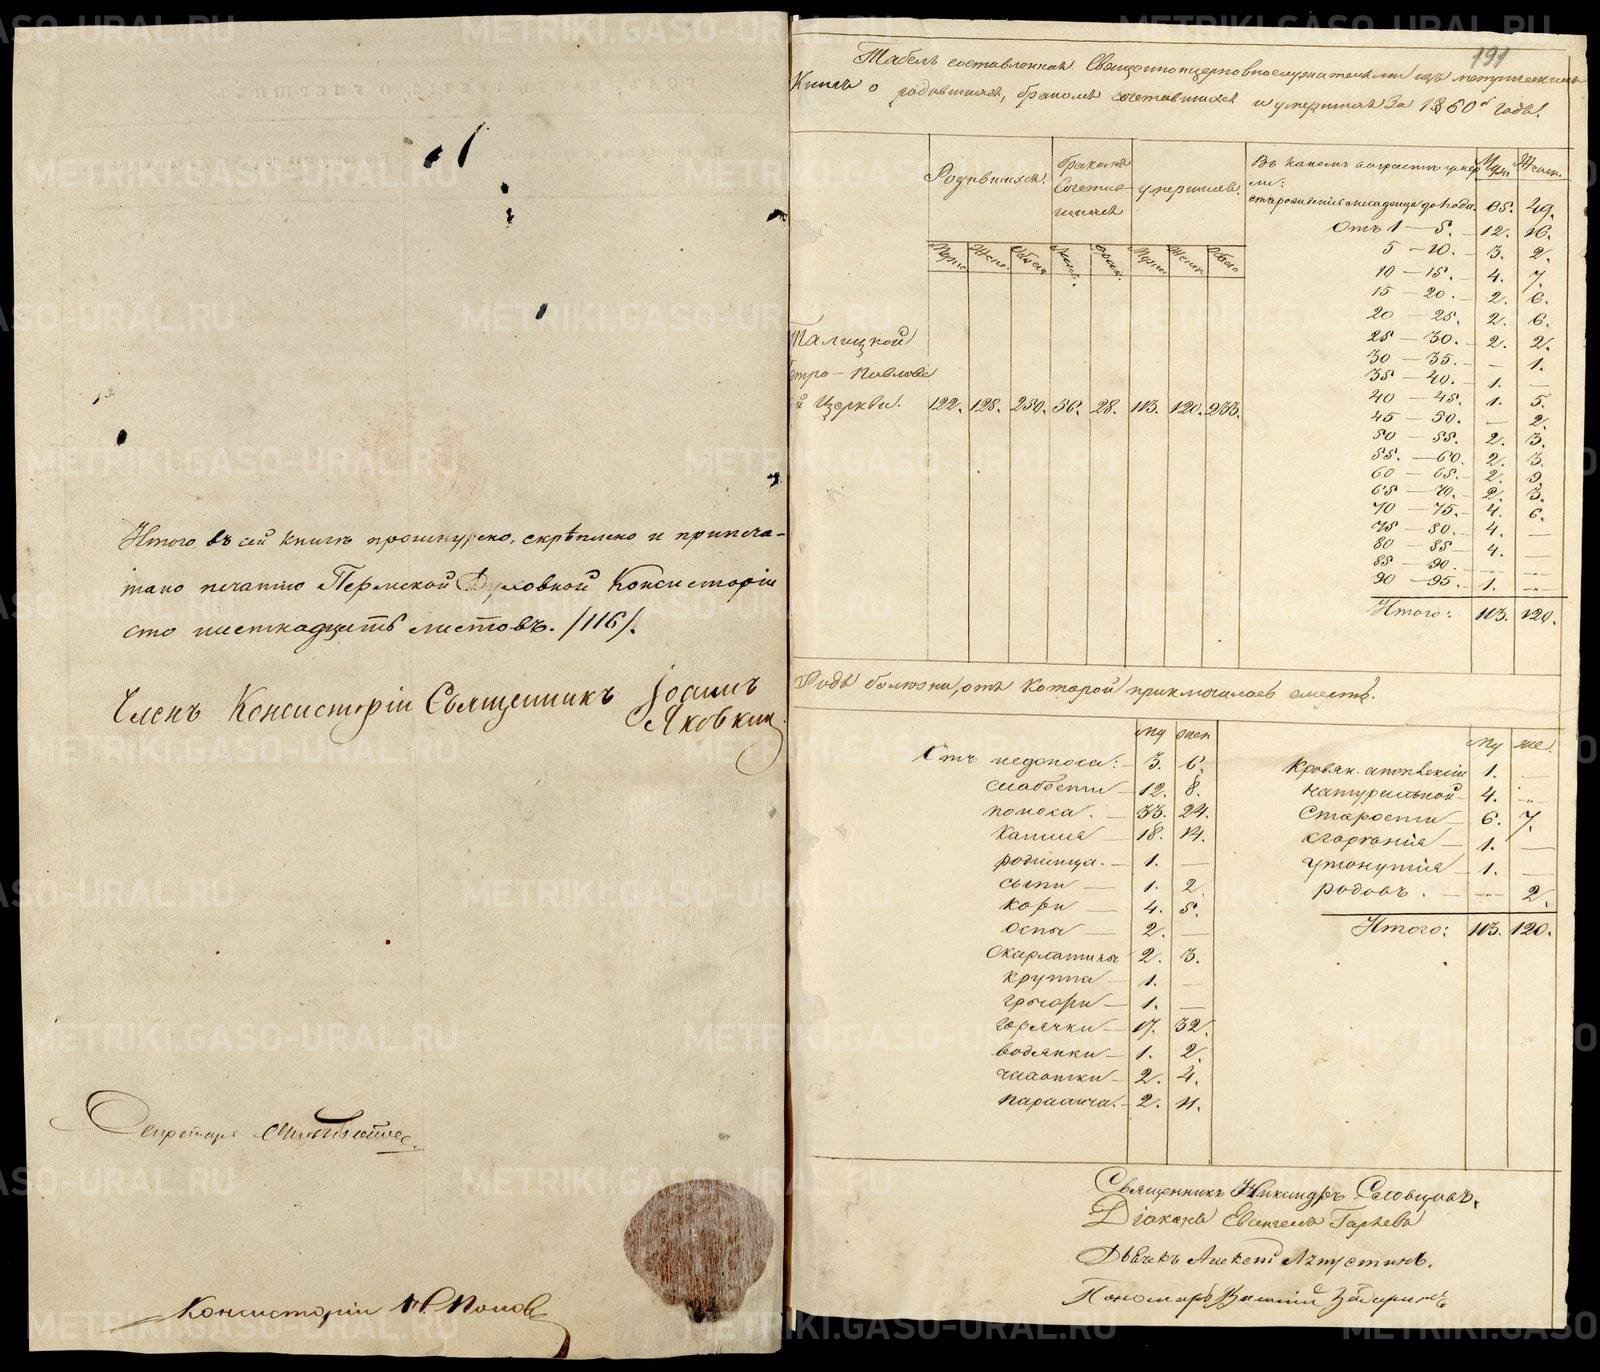 Итого въ сей книгѣ прошнурено, скрѣплено и припеча-
тано печатью Пермской Духовной Консисторіи
сто шестнадцать листовъ. /116/.
Членъ Консисторіи Священникъ Іоаннъ
Яковкин
Секретарь
Консисторіи Попов
191
Табель составленная Священноцерковнослужителями изъ метрическихъ
Книгъ о родившихся, бракомъ сочетавшихся и умершихъ за 1860й годъ.
Родившихся. бракомъ Сочетав- шихся умершихъ.
Мужес. Женс. Обоего Муж. Женс. Обоего
Талицкой
етро-Павловс
й Церкви. 122. 128. 250. 56. 28. 113. 120. 233.
Въ какомъ возрастѣ умер Муж. Женс.
ли:
отъ рожденія младенца до года. 65. 49.
Отъ 1 — 5. — 12. 16.
5 — 10. — 3. 2.
10 — 15. — 4. 7.
15 — 20. — 2. 6.
20 — 25. 2. 6.
25 — 30. — 2. 2.
30 — 35. — — 1.
35 — 40. — 1. —
40 — 45. 1. 5.
45 — 50. — 2.
50 — 55. 2. 3.
55. — 60. 2. 3.
60 — 65. — 2. 9.
65 — 70. — 2. 3.
70 — 75. — 4. 6.
75 — 80. — 4. —
80 — 85 — 4. —
85 — 90. — —
90 — 95. — 1. —
Итого: 113. 120.
Родъ болѣзни, отъ Которой приключилась смерть.
му жен
Отъ недоноса: — 3. 6.
слабости — 12. 8.
поноса. — 33. 24.
Кашля — 18. 14.
родимца. — 1. —
сыпи — 1. 2.
Кори — 4. 5.
Оспы — 2. —
Скарлатины 2. 3.
Круппа — 1. —
грыжи — 1. —
горячки — 17. 32.
водянки — 1. 2.
чахотки — 2. 4.
паралича. — 2. 11.
му же.
Кровян. апоплексіи 1. —
натуральной — 4. —
Старости — 6. 7.
сгорѣнія — 1. —
утонутія — 1. —
родовъ. — — 2.
Итого: 113. 120.
Священникъ Никандръ Словцовъ.
Діаконъ Евангелъ Гаряевъ
Дьячекъ Алексѣй
Пономарь Василій